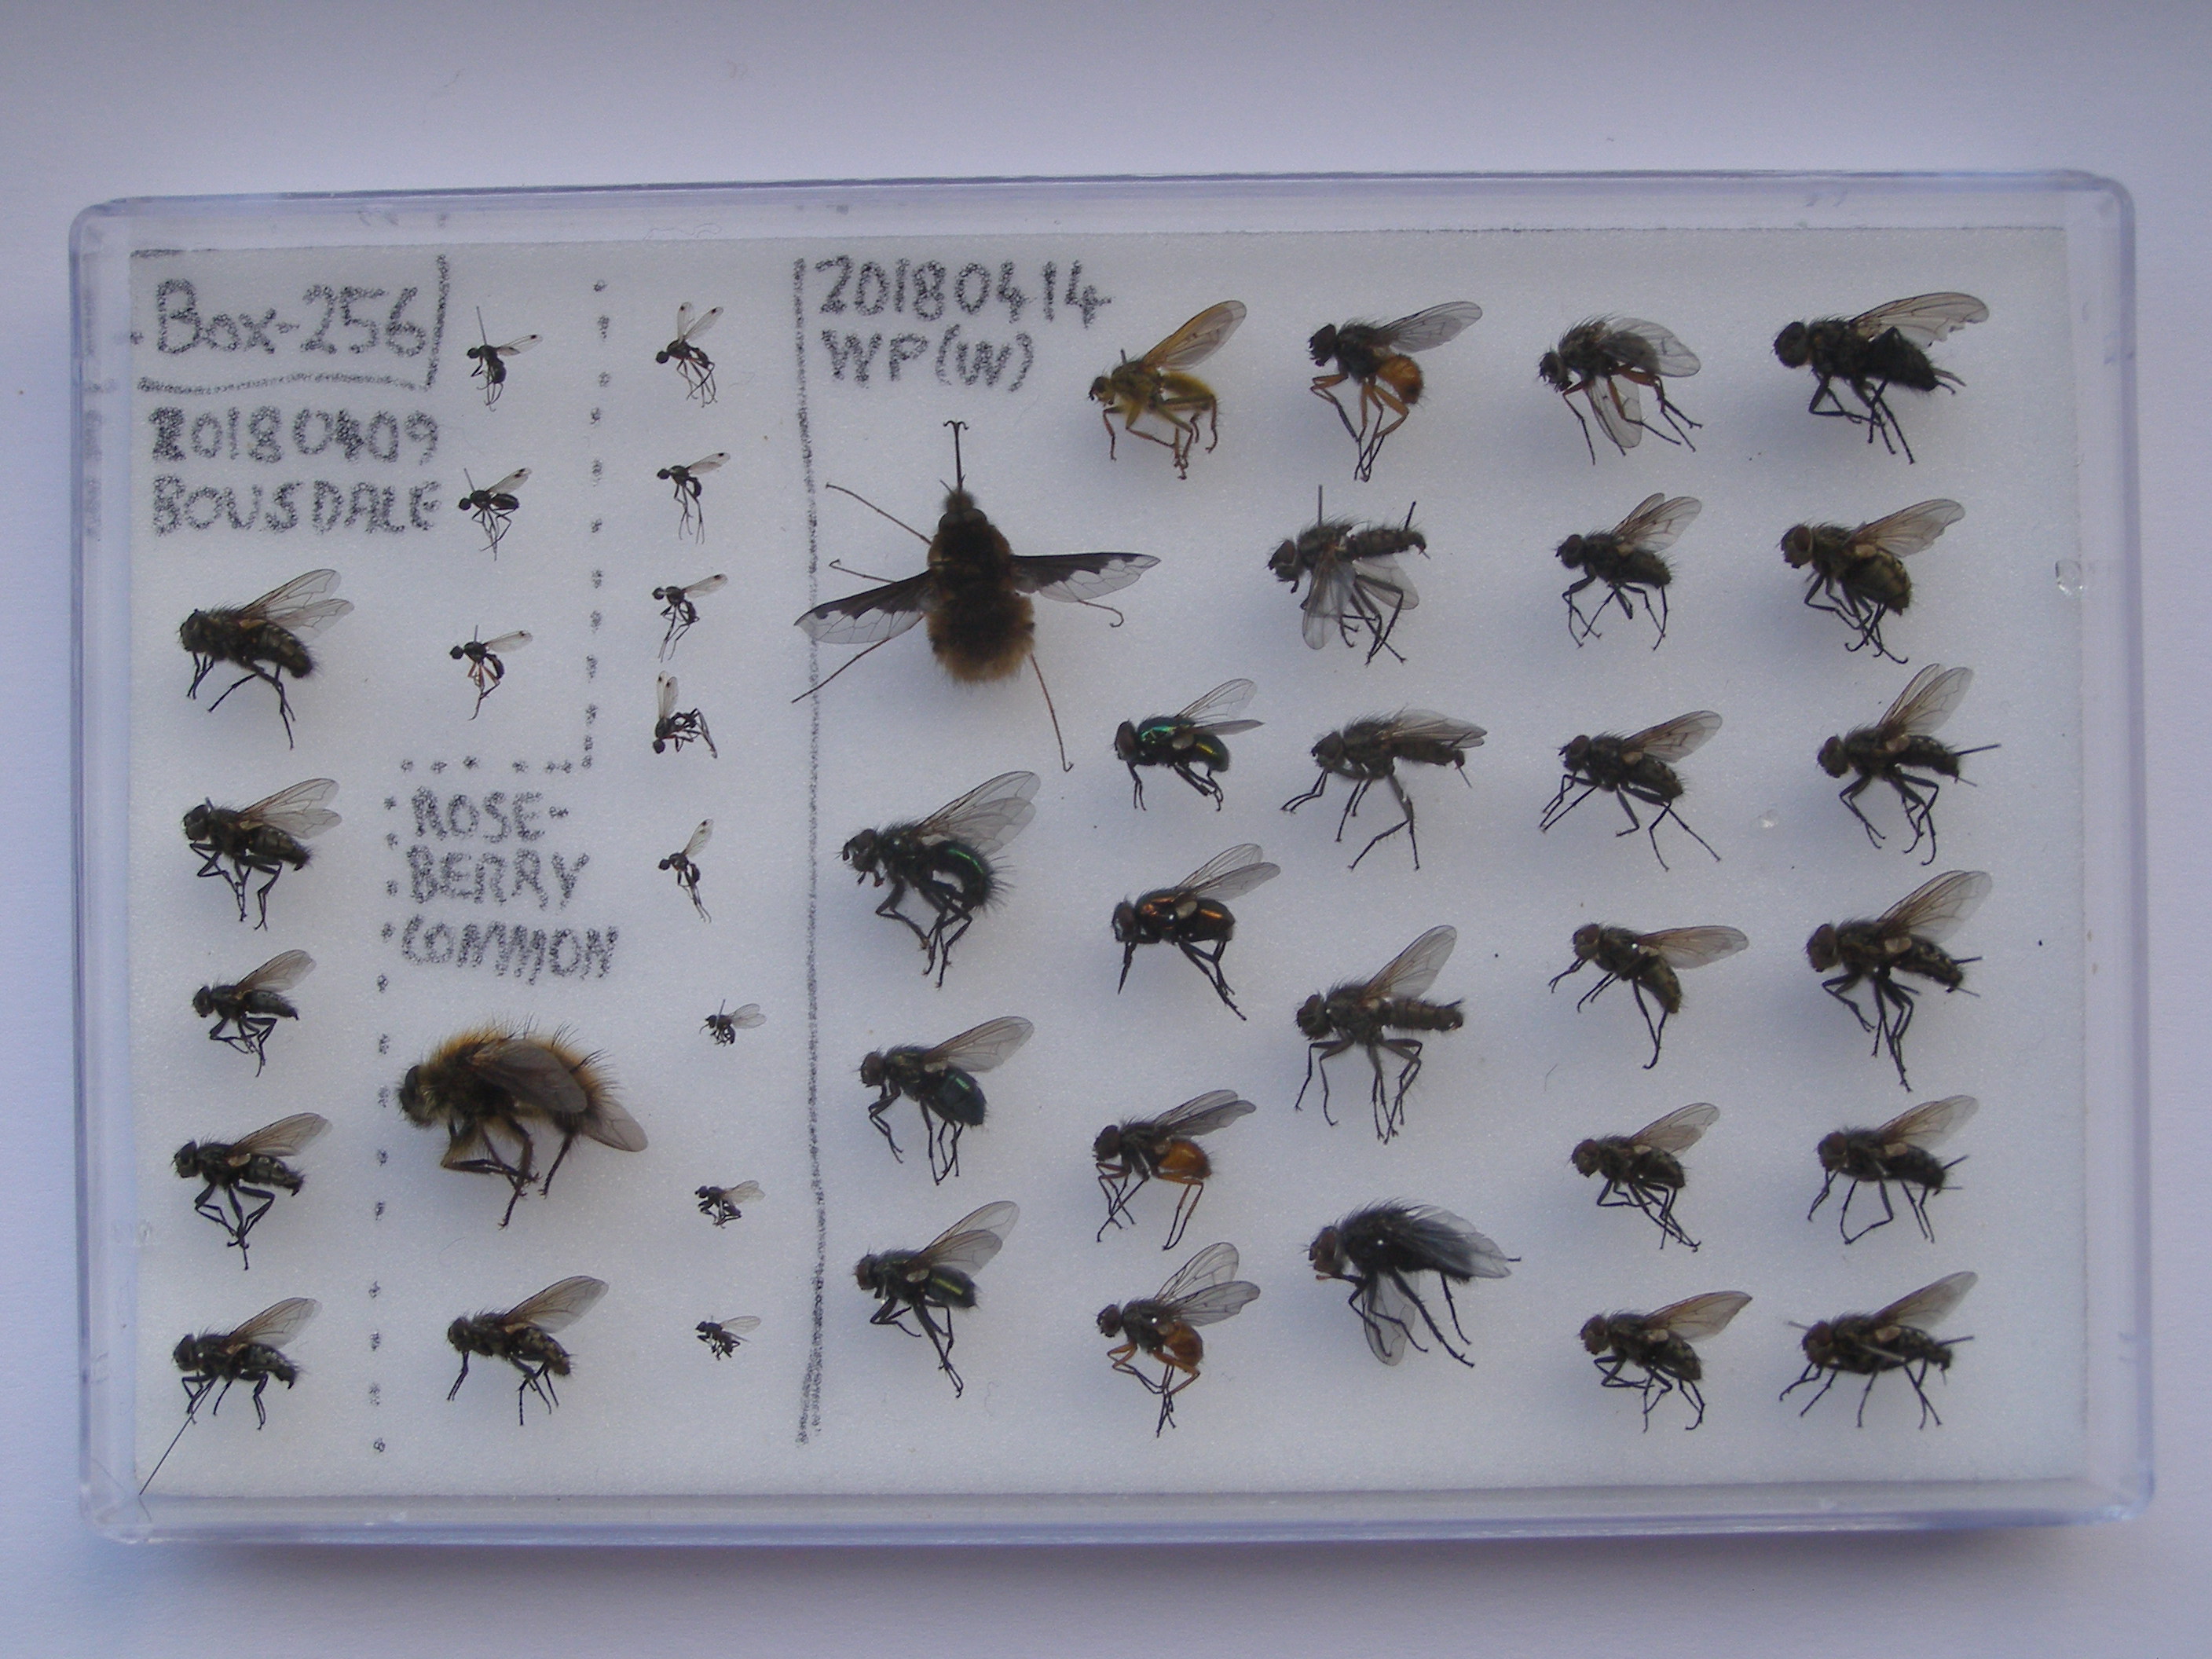 Box-256
20180409
BOUSDALE
ROSE-
BERRY
COMMON
20180414
WP(W)